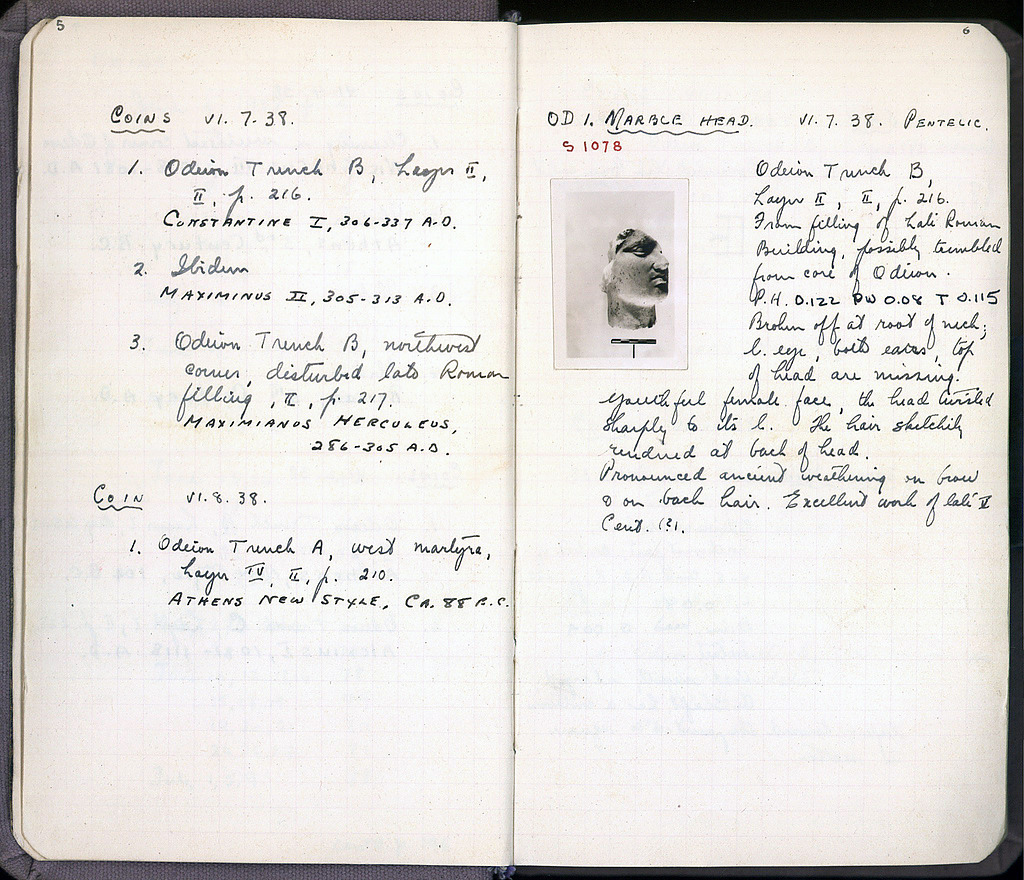 5
COINS VI. 7. 38.
1. Odeion Trench B, Layer II,
II, p. 216.
CONSTANTINE I, 306-337 A.D.
2. Ibidem
MAXIMINUS II, 305-313 A.D.
3. Odeion Trench B, northwest
corner, disturbed late Roman
filling, II, p. 217.
MAXIMIANUS HERCULEUS,
286-305 A.D.
COIN VI. 8. 38.
1. Odeion Trench A, west martyra,
Layer IV, II, p. 210.
ATHENS NEW STYLE, CA. 88 B.C.
6
OD 1. MARBLE HEAD. VI. 7. 38. PENTELIC.
S 1078
Odeion Trench B,
Layer II, II, p. 216.
From filling of Late Roman
Building, possibly tumbled
from core of Odeion.
P.H. 0.122 PW 0.08 T 0.115
Broken off at root of neck;
l. eye, both ears, top
of head are missing.
Youthful female face, the head twisted
sharply to its l. The hair sketchily
rendered at back of head.
Pronounced ancient weathering on brow
& on back hair. Excellent work of late V
Cent. (?).